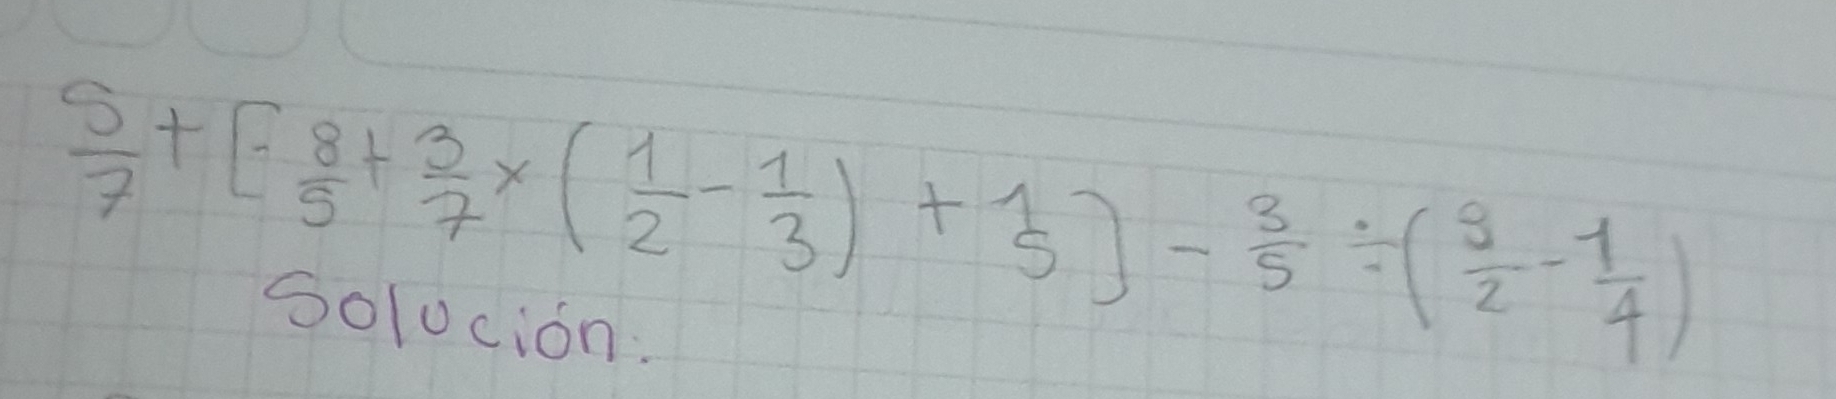 5/7 + [- 8/5 + 3/7 × (1/2 - 1/3) + 1/5] - 3/5 ÷ (9/2 - 1/4)
Solución: